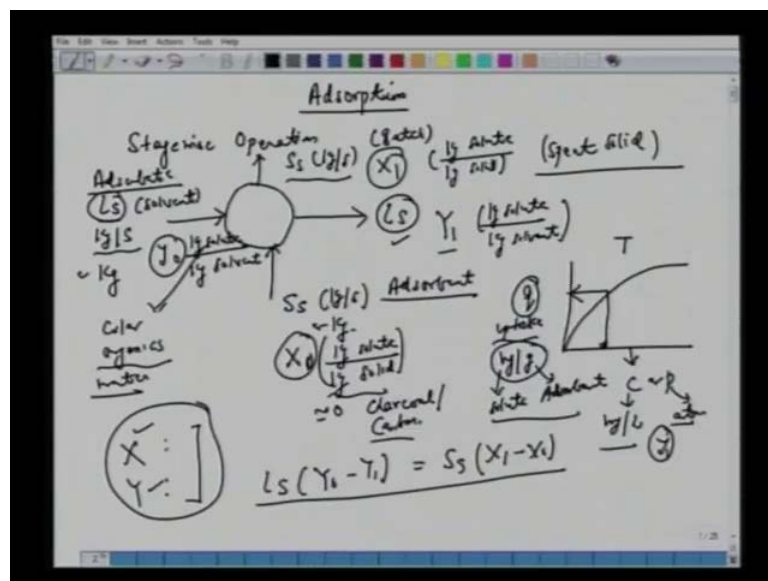 File Edit View Insert Actions Tools Help
Adsorption
Stagewise Operation (Batch)
Ss (kg/s) X1 (kg solute / kg solid) (Spent Solid)
Adsorbate
Ls (Solvent)
kg/s
~ kg
Y0 kg solute / kg solvent
Ls Y1 (kg solute / kg solvent)
Color
organics
matter
Ss (kg/s) Adsorbent
~ kg
X0 (kg solute / kg solid)
≃0 Charcoal / Carbon
T
q
uptake
mg/g
solute Adsorbent
C or P
mg/L atm
X :
Y :
Ls (Y0 - Y1) = Ss (X1 - X0)
1 / 25